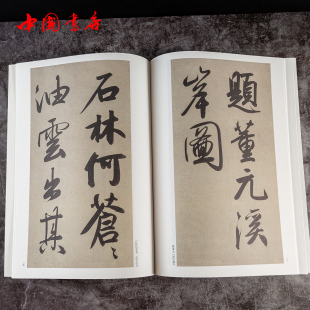 中国书店
題董元溪
岸圖
石林何蒼〻
油雲出其